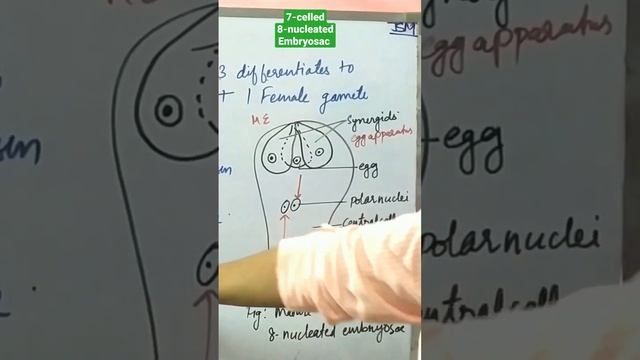 7-celled
8-nucleated
Embryosac
3 differentiates to
+ 1 Female gamete
M.E
synergids
egg apparatus
egg
polar nuclei
central cell
8-nucleated embryosac
egg apparatus
egg
polar nuclei
central cell